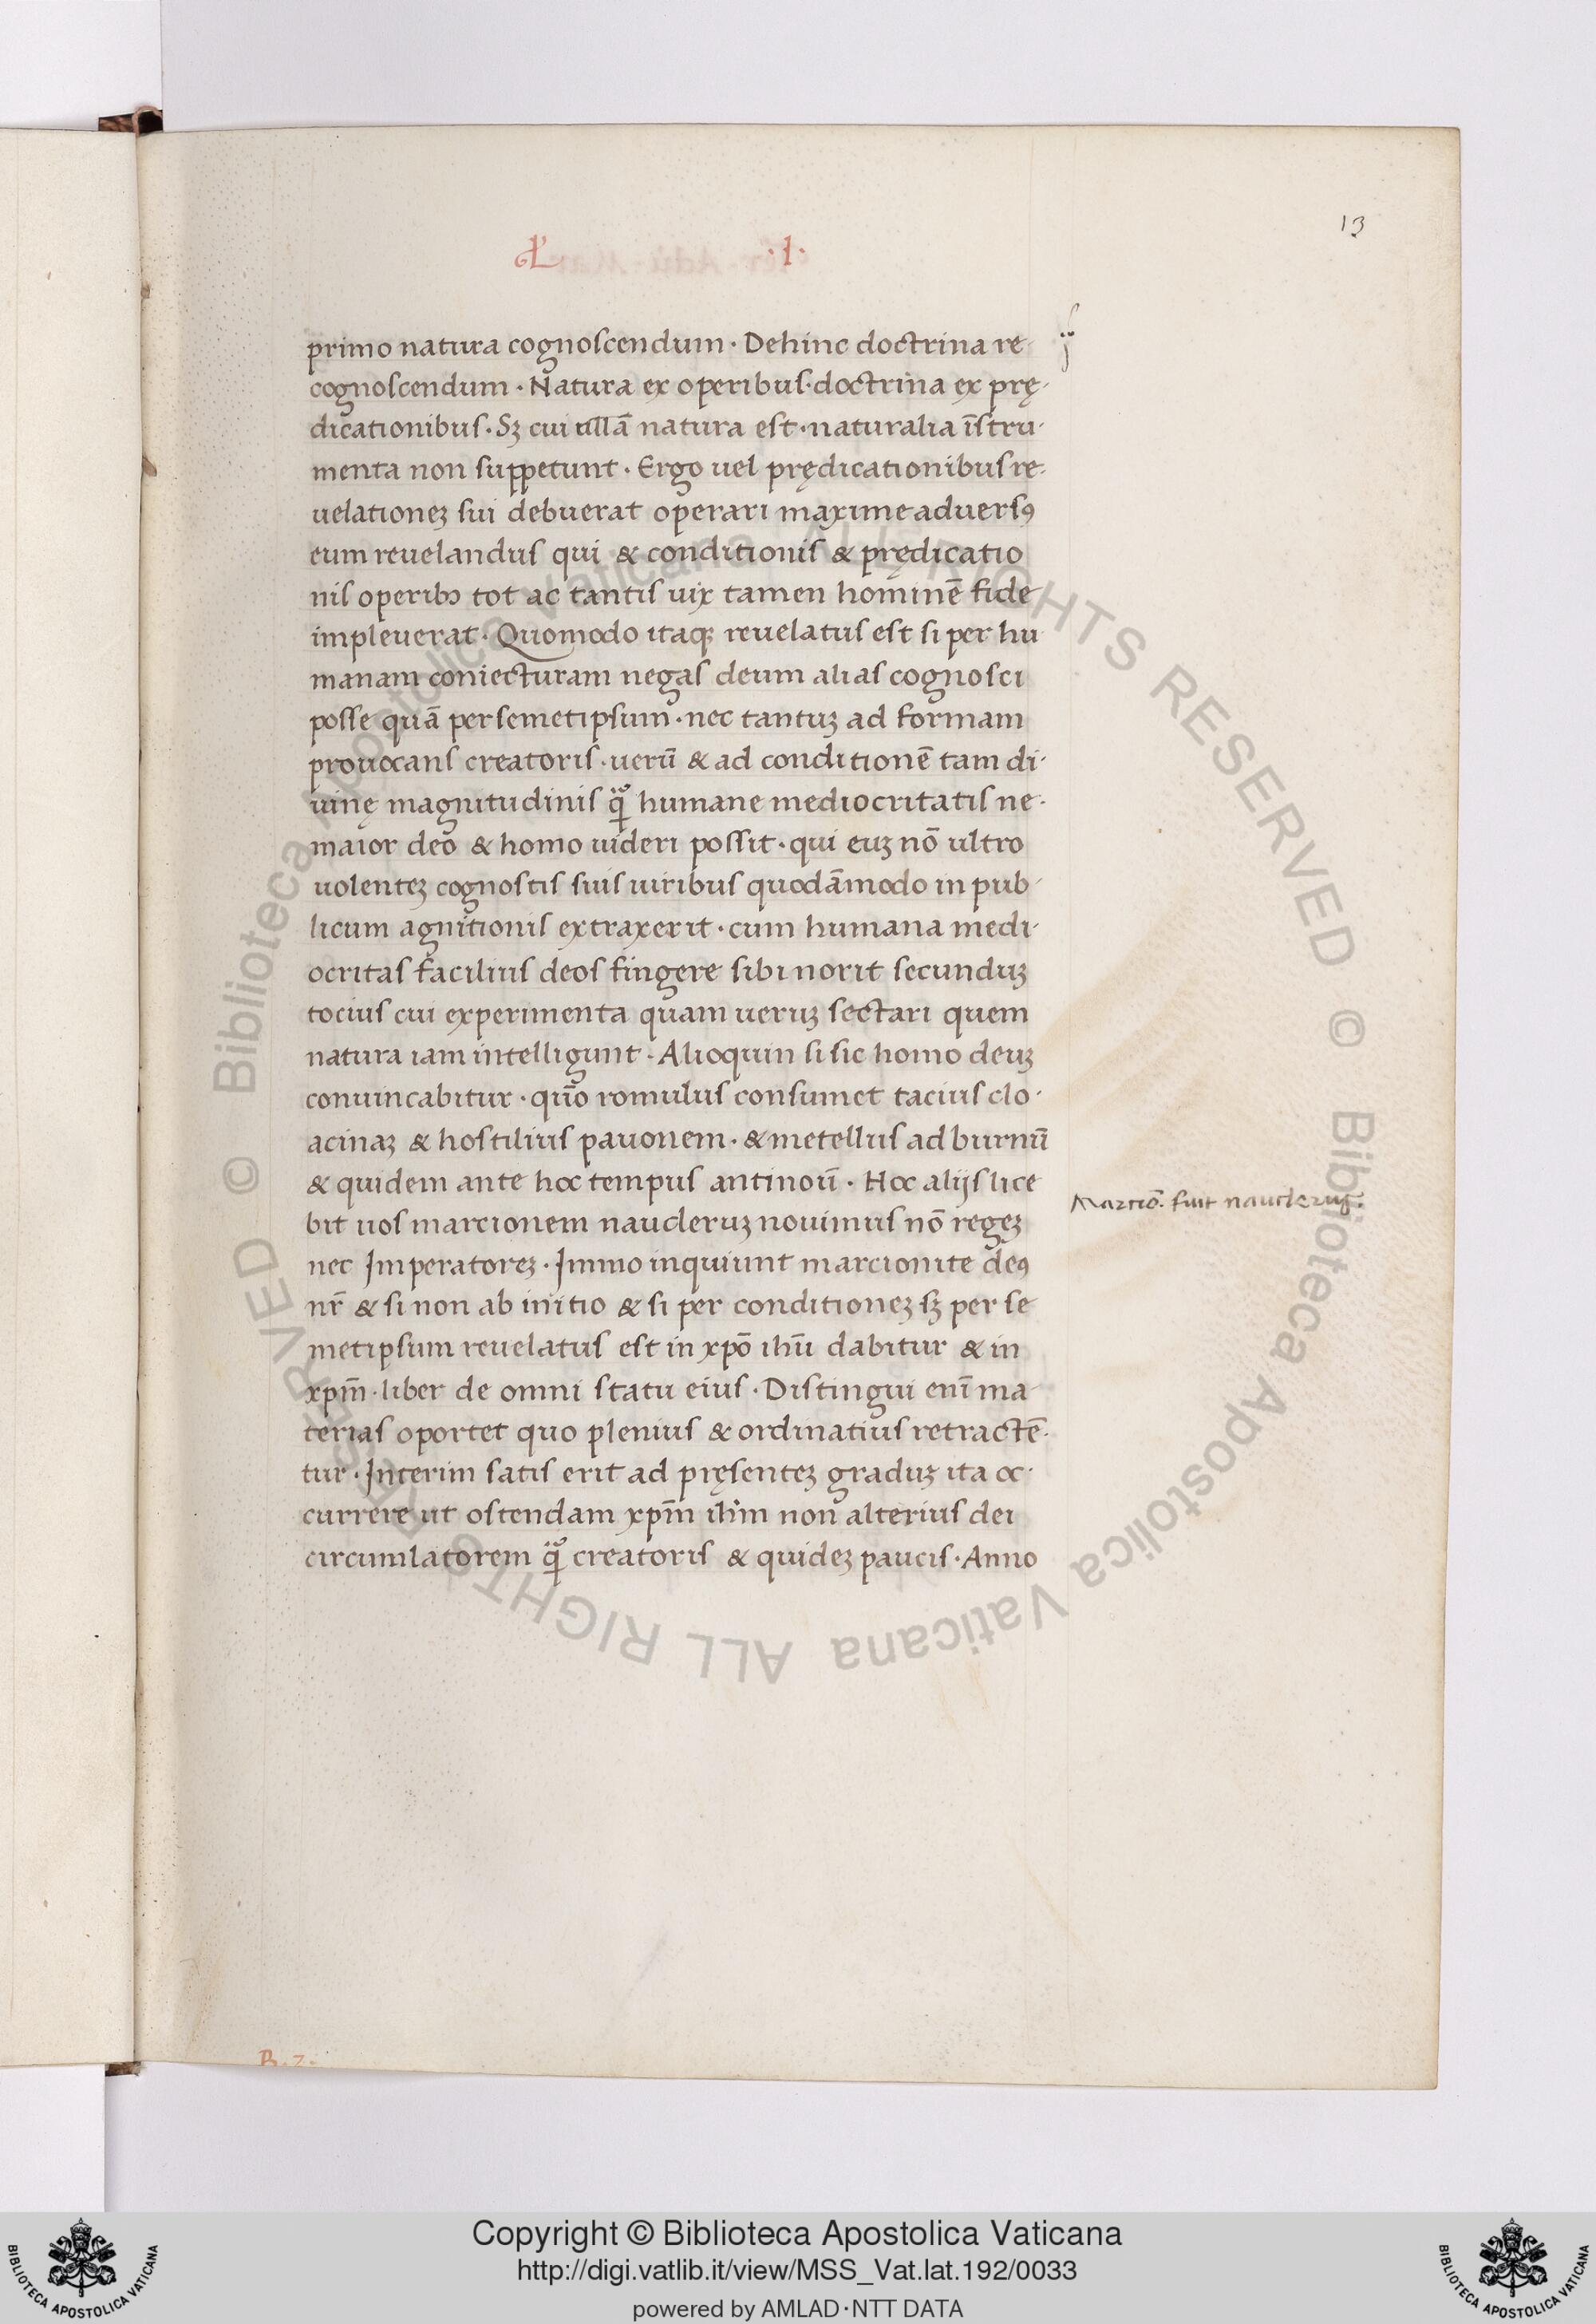 13
L · I ·
primo natura cognoscendum · Dehinc doctrina re·
cognoscendum · Natura ex operibus · doctrina ex prę·
dicationibus · Sꝫ cui ullā natura est · naturalia īstru·
menta non suppetunt · Ergo uel prędicationibus re·
uelationeꝫ sui debuerat operari maxime aduersꝰ
eum reuelandus qui & conditionis & prędicatio
nis operibꝫ tot ac tantis uix tamen hominē fide
impleuerat · Quomodo itaqꝫ reuelatus est si per hu
manam coniecturam negas deum alias cognosci
posse quā per semetipsum · nec tantuꝫ ad formam
prouocans creatoris · uerū & ad conditionē tam di·
uinę magnitudinis ꝗ̃ humane mediocritatis ne·
maior deo & homo uideri possit · qui euꝫ nō ultro
uolenteꝫ cognosci suis uiribus quodāmodo in pub·
licum agnitionis extraxerit · cum humana medi·
ocritas facilius deos fingere sibi norit secunduꝫ
tocius cui experimenta quam ueruꝫ sectari quem
natura iam intelligunt · Alioquin si sic homo deuꝫ
conuincabitur · quō romulus consumet tacius clo·
acinaꝫ & hostilius pauonem · & metellus ad burnū
& quidem ante hoc tempus antinoū · Hoc alijs lice
bit uos marcionem naucleruꝫ nouimus nō regeꝫ
Marciō. fuit nauclerus.
nec Imperatoreꝫ · Immo inquiunt marcionite deꝰ
nr̄ & si non ab initio & si per conditioneꝫ sꝫ per se
metipsum reuelatus est in xpō ihū dabitur & in
xpm̄ · liber de omni statu eius · Distingui enī ma
terias oportet quo plenius & ordinatius retractē·
tur · Interim satis erit ad pręsenteꝫ graduꝫ ita oc·
currere ut ostendam xpm̄ ihm̄ non alterius dei
circumlatorem ꝗ̃ creatoris & quideꝫ paucis · Anno
B · 2 ·
© Biblioteca Apostolica Vaticana ALL RIGHTS RESERVED © Biblioteca Apostolica Vaticana ALL RIGHTS RESERVED
Copyright © Biblioteca Apostolica Vaticana
http://digi.vatlib.it/view/MSS_Vat.lat.192/0033
powered by AMLAD·NTT DATA
BIBLIOTECA APOSTOLICA VATICANA
BIBLIOTECA APOSTOLICA VATICANA